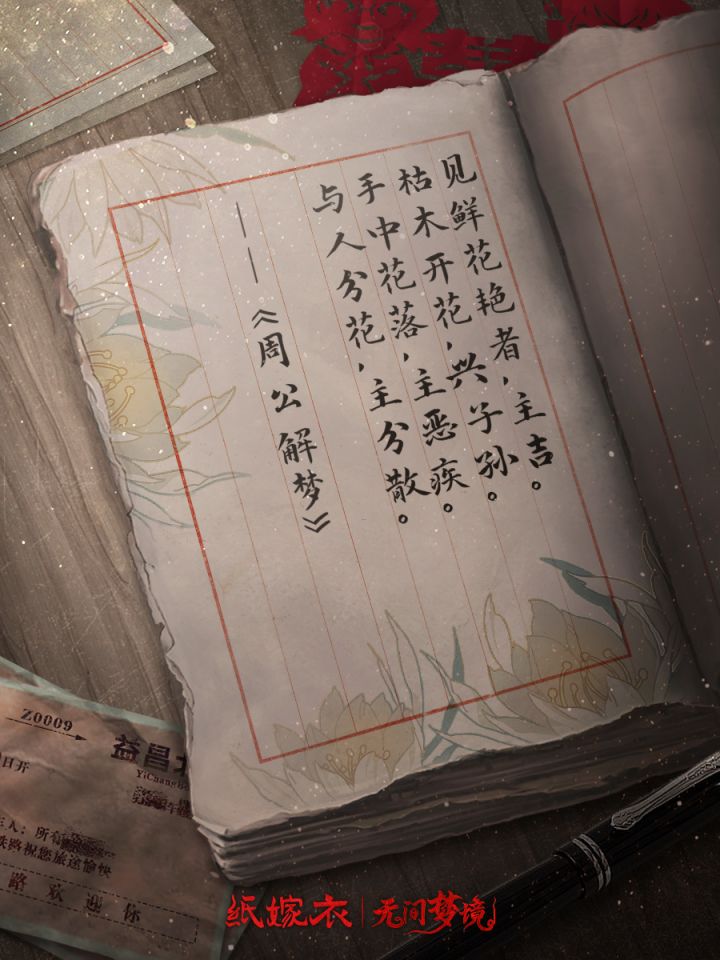 见鲜花艳者，主吉。
枯木开花，兴子孙。
手中花落，主恶疾。
与人分花，主分散。
——《周公解梦》
Z0009
益昌北
YiChang
日开
主人：所有
铁路祝您旅途愉快
路欢迎你
纸嫁衣|无间梦境